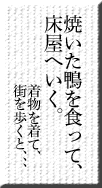 焼いた鴨を食って、
床屋へいく。
着物を着て、
街を歩くと、、、